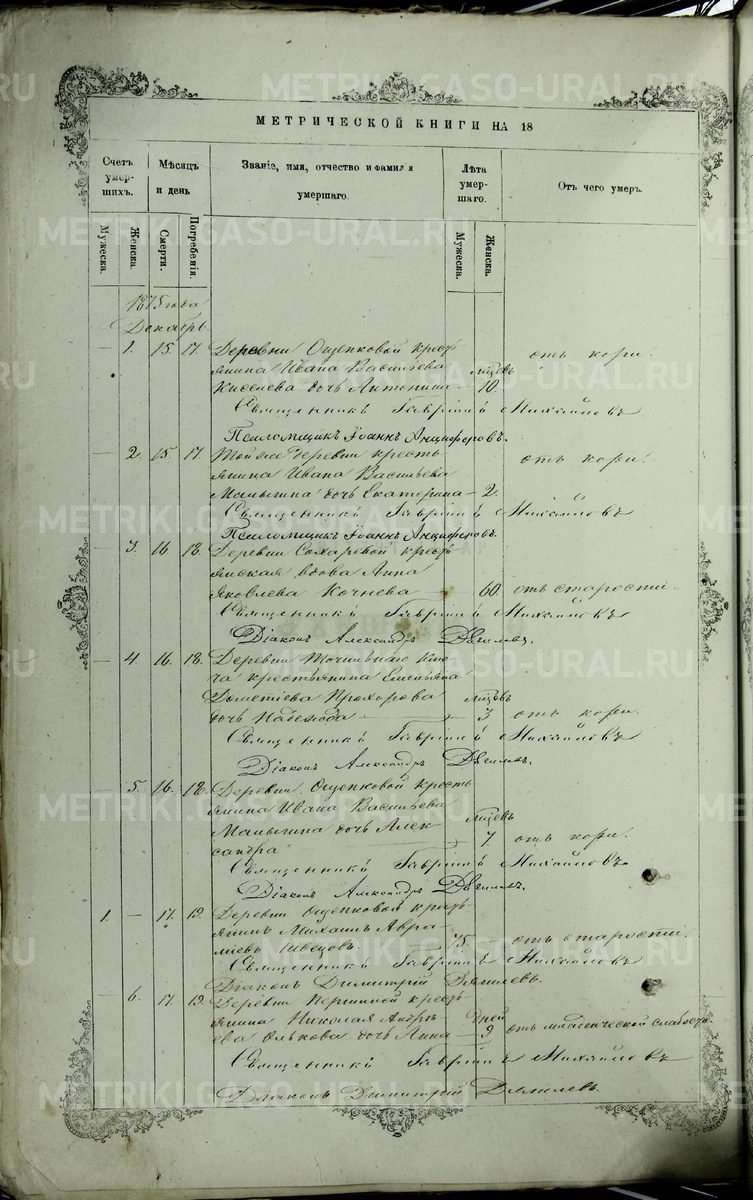 МЕТРИЧЕСКОЙ КНИГИ НА 18
Счетъ умерших. Мѣсяцъ и день Званіе, имя, отчество и фамилія умершаго. Лѣта умершаго. Отъ чего умеръ.
Мужеска. Женска. Смерти. Погребенія. Мужеска. Женска.
1875 года
Декабрь.
— 1. 15 17. Деревни Ощепковой кресть
янина Ивана Васильева мѣсяцевъ отъ кори.
Киселева дочь Антонина — 10.
Священникъ Гавріилъ Михайловъ
Псаломщикъ Іоаннъ Анциферовъ.
— 2. 15. 17. Той же деревни кресть отъ кори.
янина Ивана Васильева
Мамышна дочь Екатерина — 2.
Священникъ Гавріилъ Михайловъ
Псаломщикъ Іоаннъ Анциферовъ.
— 3. 16 18. Деревни Сохаревой кресть
янская вдова Анна
Яковлева Кочнева — 60. отъ старости.
Священникъ Гавріилъ Михайловъ
Діаконъ Александръ
— 4. 16. 18. Деревни Точильнаго Клю
ча крестьянина Емельяна
Дометіева Прохорова
дочь Надежда — 3 отъ кори.
Священникъ Гавріилъ Михайловъ
Діаконъ Александръ
— 5. 16. 18. Деревни Ощепковой кресть
янина Ивана Васильева
дочь Алек
сандра 7. отъ кори.
Священникъ Гавріилъ Михайловъ
Діаконъ Александръ
1. — 17. 19. Деревни Ощепковой кресть
янинъ Михаилъ Авра
міевъ Швецовъ. 75. отъ старости.
Священникъ Гавріилъ Михайловъ
Діаконъ Димитрій
— 6. 17. 19. Деревни Першиной кресть
янина Николая Андрѣ дней
ева Олькова дочь Анна — 9 отъ младенческой слабости.
Священникъ Гавріилъ Михайловъ
Діаконъ Димитрій
METRIKI.GASO-URAL.RU